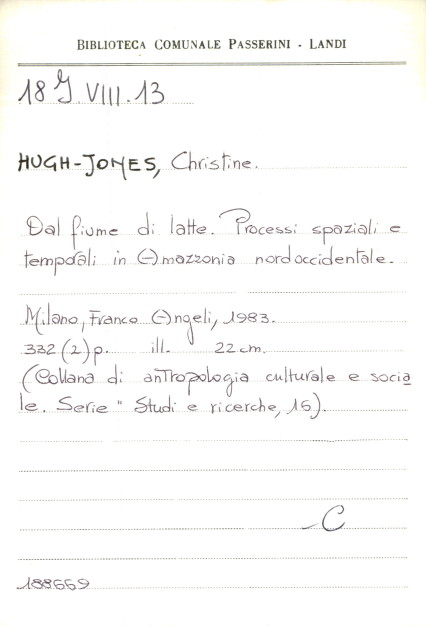 BIBLIOTECA COMUNALE PASSERINI - LANDI
18 G. VIII. 13
HUGH-JONES, Christine.
Dal fiume di latte. Processi spaziali e
temporali in Amazzonia nordoccidentale.
Milano, Franco Angeli, 1983.
332 (2) p. ill. 22 cm.
(Collana di antropologia culturale e socia
le. Serie " Studi e ricerche, 15).
C
188669